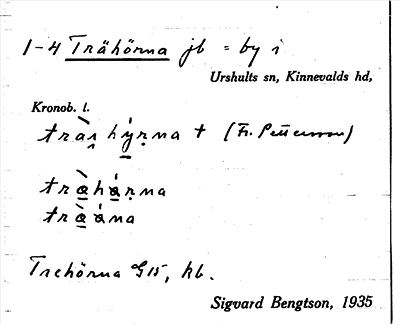 1-4 Trähörna jb = by i
Urshults sn, Kinnevalds hd,
Kronob. l.
hýrna + (Fr. Pettersson)
Trehörna G15, kb.
Sigvard Bengtson, 1935